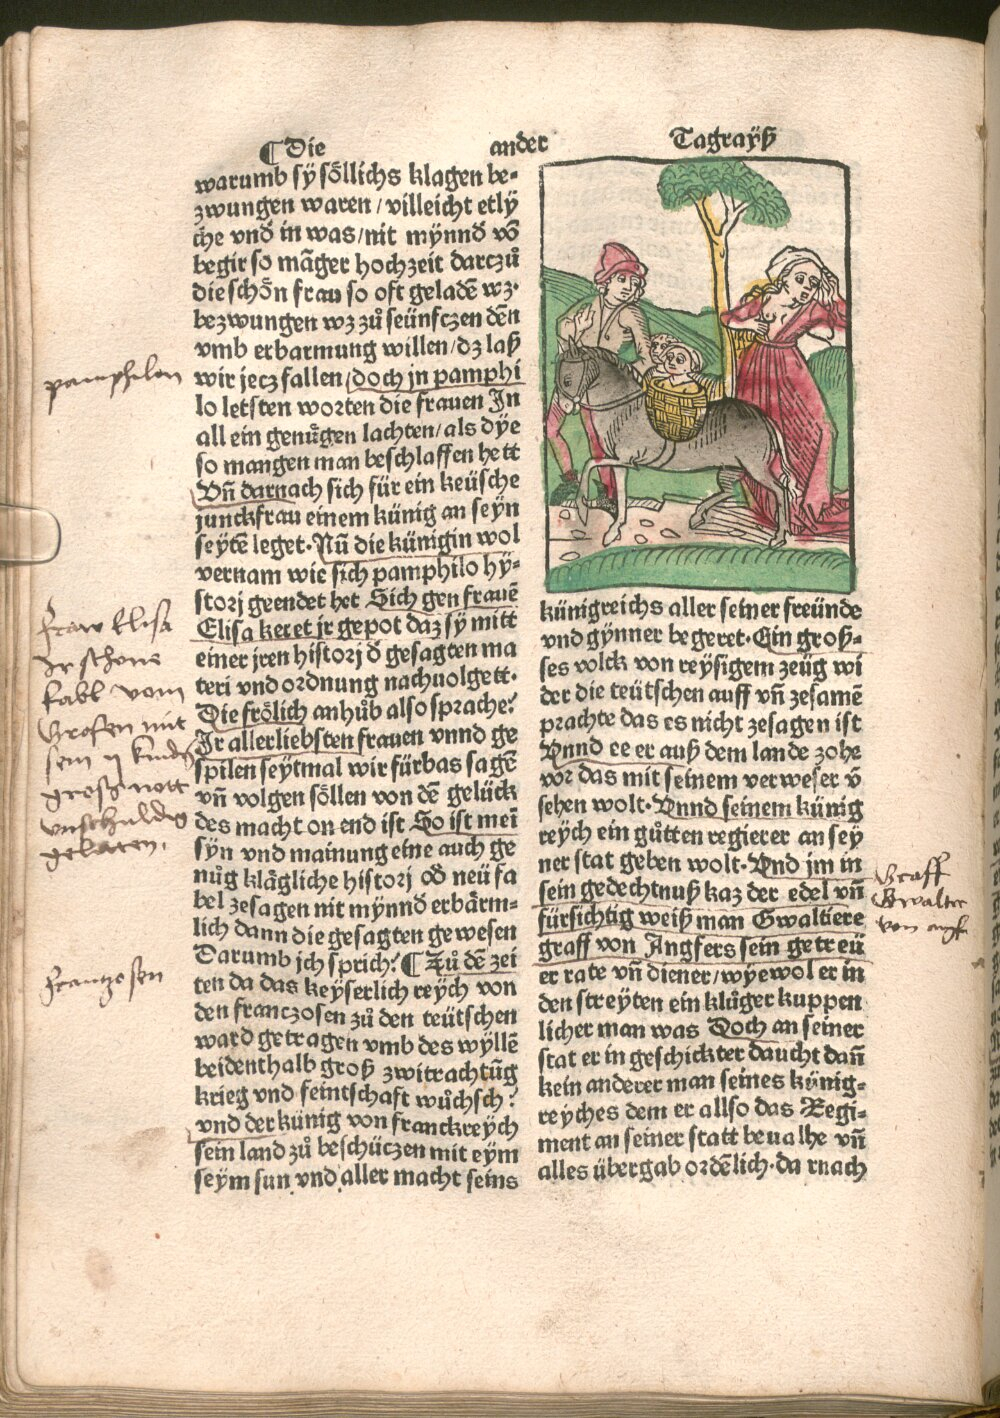 ¶ Die ander Tagrayß
warumb sÿ söllichs klagen be-
zwungen waren / villeicht etlÿ
che vnd in was / nit mÿnnd võ
begir so mãger hochzeit darczů
die schön frau so oft geladẽ wz·
bezwungen wz zů seünfczen den
vmb erbarmung willen / dz laß
wir jecz fallen / doch jn pamphi
lo letsten worten die frauen In
all ein genůgen lachten / als dÿe
so mangen man beschlaffen hett
Vñ darnach sich für ein keüsche
junckfrau einem künig an seyn
seytẽ leget· Nũ die künigin wol
vernam wie sich pamphilo hÿ-
storj geendet het Sich gen frauẽ
Elisa keret jr gepot daz sÿ mitt
einer jren historj d gesagten ma
teri vnd ordnung nachuolgett·
Die frölich anhůb also sprache?
Ir allerliebsten frauen vnnd ge
spilen seytmal wir fürbas sagẽ
vñ volgen söllen von dẽ gelück
des macht on end ist So ist mei
sÿn vnd mainung eine auch ge
nůg klägliche historj od neü fa
bel zesagen nit mÿnnd erbärm-
lich dann die gesagten gewesen
Darumb ich sprich? ¶ Zů dẽ zei
ten da das keÿserlich reÿch von
den franczosen zů den teütschen
ward getragen vmb des wÿllẽ
beidenthalb groß zwitrachtũg
krieg vnd feintschaft wůchsch?
vnd der künig von franckreÿch
sein land zů beschüczen mit eÿm
seÿm sun vnd aller macht seins
künigreichs aller seiner freünde
vnd gÿnner begeret· Ein groß-
ses volck von reÿsigem zeüg wi
der die teütschen auff vñ zesamẽ
prachte das es nicht zesagen ist
Vnnd ee er auß dem lande zohe
vor das mit seinem verweser v̈
sehen wolt· Vnnd seinem künig
reÿch ein gůtten regierer an seÿ
ner stat geben wolt· Vnd jm in
sein gedechtnuß kaz der edel vñ
fürsichtig weiß man Gwaltiere
graff von Angfers sein getreü
er rate vñ diener / wÿewol er in
den streÿten ein klůger kuppen
licher man was Doch an seiner
stat er in geschickter daucht dañ
kein anderer man seines künig-
reÿches dem er allso das Regi-
ment an seiner statt beualhe vñ
alles übergab ordẽlich· darnach
pamphilon
fraw Elisa
Ir schone
fabl vom
Grafen mit
sein ij kindn
große nott
vnschuldig
gelaten.
frantzosen
Graff
Gwalter
von angf